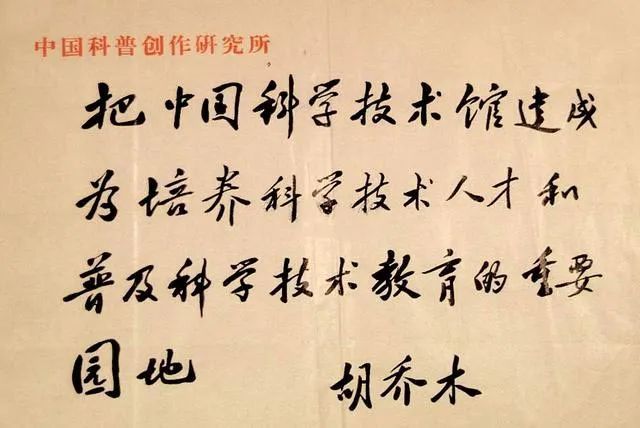 中国科普创作研究所
把中国科学技术馆建成
为培养科学技术人才和
普及科学技术教育的重要
园地 胡乔木